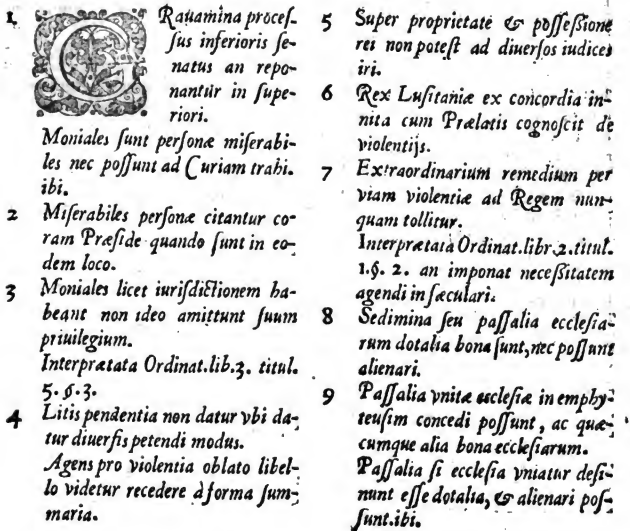 1 GRauamina proceſ-
ſus inferioris ſe-
natus an repo-
nantur in ſupe-
riori.
Moniales ſunt perſonæ miſerabi-
les nec poſſunt ad Curiam trahi.
ibi.
2 Miſerabiles perſonæ citantur co-
ram Præſide quando ſunt in eo-
dem loco.
3 Moniales licet iuriſdictionem ha-
beant non ideo amittunt ſuum
priuilegium.
Interprætata Ordinat.lib.3. titul.
5. §.3.
4 Litis pendentia non datur vbi da-
tur diuerſis petendi modus.
Agens pro violentia oblato libel-
lo videtur recedere à forma ſum-
maria.
5 Super proprietate & poſſeſſione
rei non poteſt ad diuerſos iudices
iri.
6 Rex Luſitaniæ ex concordia in-
nita cum Prælatis cognoſcit de
violentijs.
7 Extraordinarium remedium per
viam violentiæ ad Regem nun-
quam tollitur.
Interprætata Ordinat.libr.2.titul.
1.§. 2. an imponat neceſſitatem
agendi in ſæculari.
8 Sedimina ſeu paſſalia eccleſia-
rum dotalia bona ſunt,nec poſſunt
alienari.
9 Paſſalia vnita eccleſiæ in emphy-
teuſim concedi poſſunt, ac quæ-
cumque alia bona eccleſiarum.
Paſſalia ſi eccleſia vniatur deſi-
nunt eſſe dotalia, & alienari poſ-
ſunt.ibi.